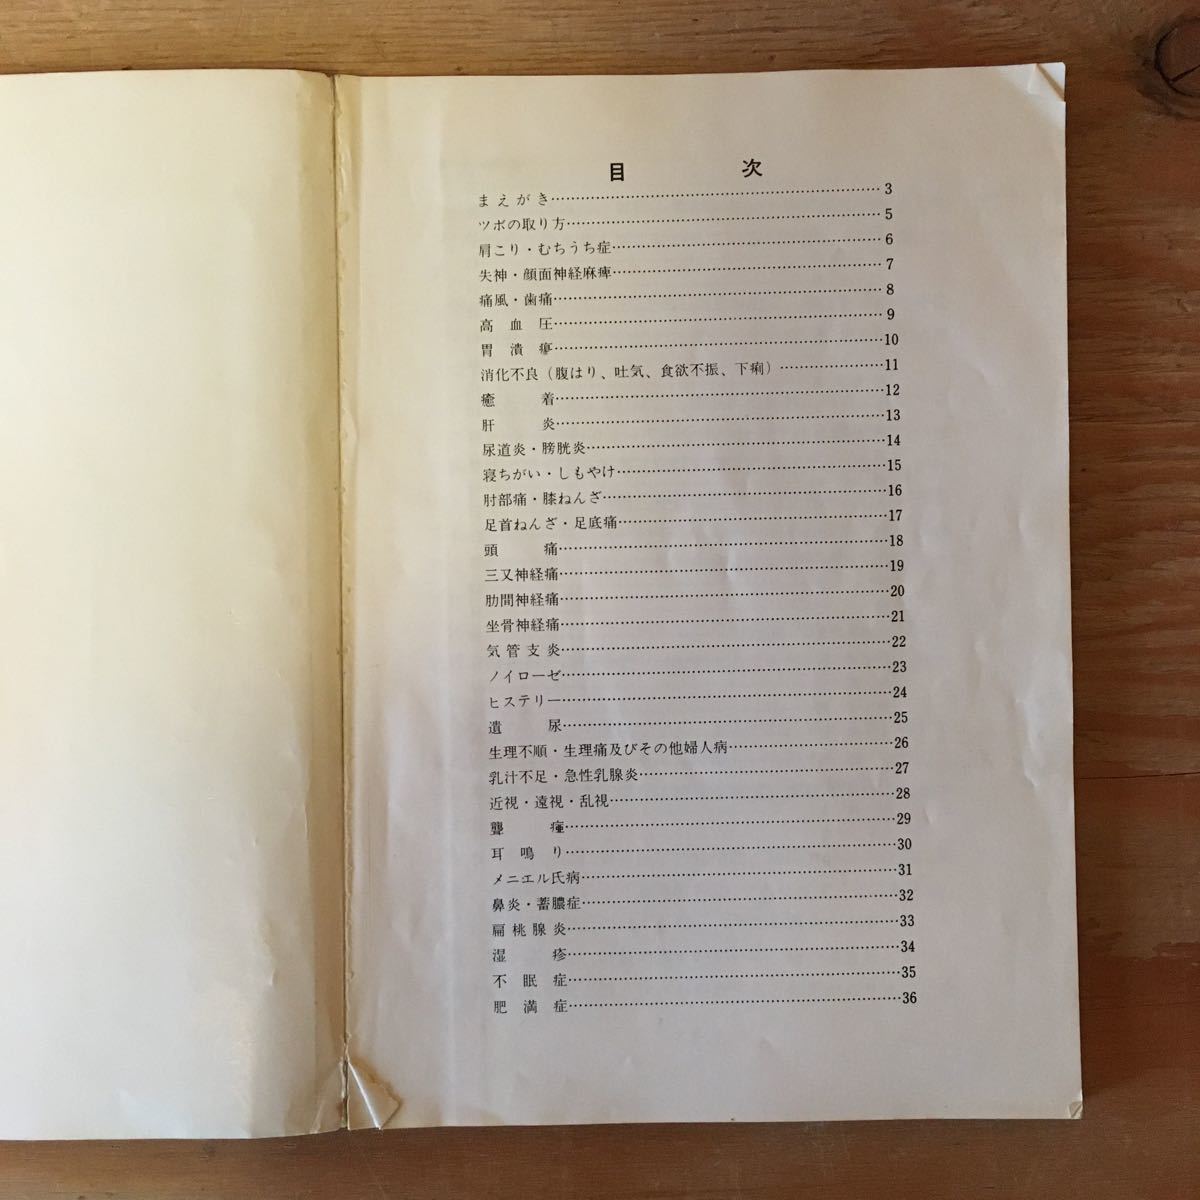 目 次
まえがき……………3
ツボの取り方……………5
肩こり・むちうち症……………6
失神・顔面神経麻痺……………7
痛風・歯痛……………8
高血圧……………9
胃潰瘍……………10
消化不良（腹はり、吐気、食欲不振、下痢）……………11
癒着……………12
肝炎……………13
尿道炎・膀胱炎……………14
寝ちがい・しもやけ……………15
肘部痛・膝ねんざ……………16
足首ねんざ・足底痛……………17
頭痛……………18
三又神経痛……………19
肋間神経痛……………20
坐骨神経痛……………21
気管支炎……………22
ノイローゼ……………23
ヒステリー……………24
遺尿……………25
生理不順・生理痛及びその他婦人病……………26
乳汁不足・急性乳腺炎……………27
近視・遠視・乱視……………28
聾……………29
耳鳴り……………30
メニエル氏病……………31
鼻炎・蓄膿症……………32
扁桃腺炎……………33
湿疹……………34
不眠症……………35
肥満症……………36